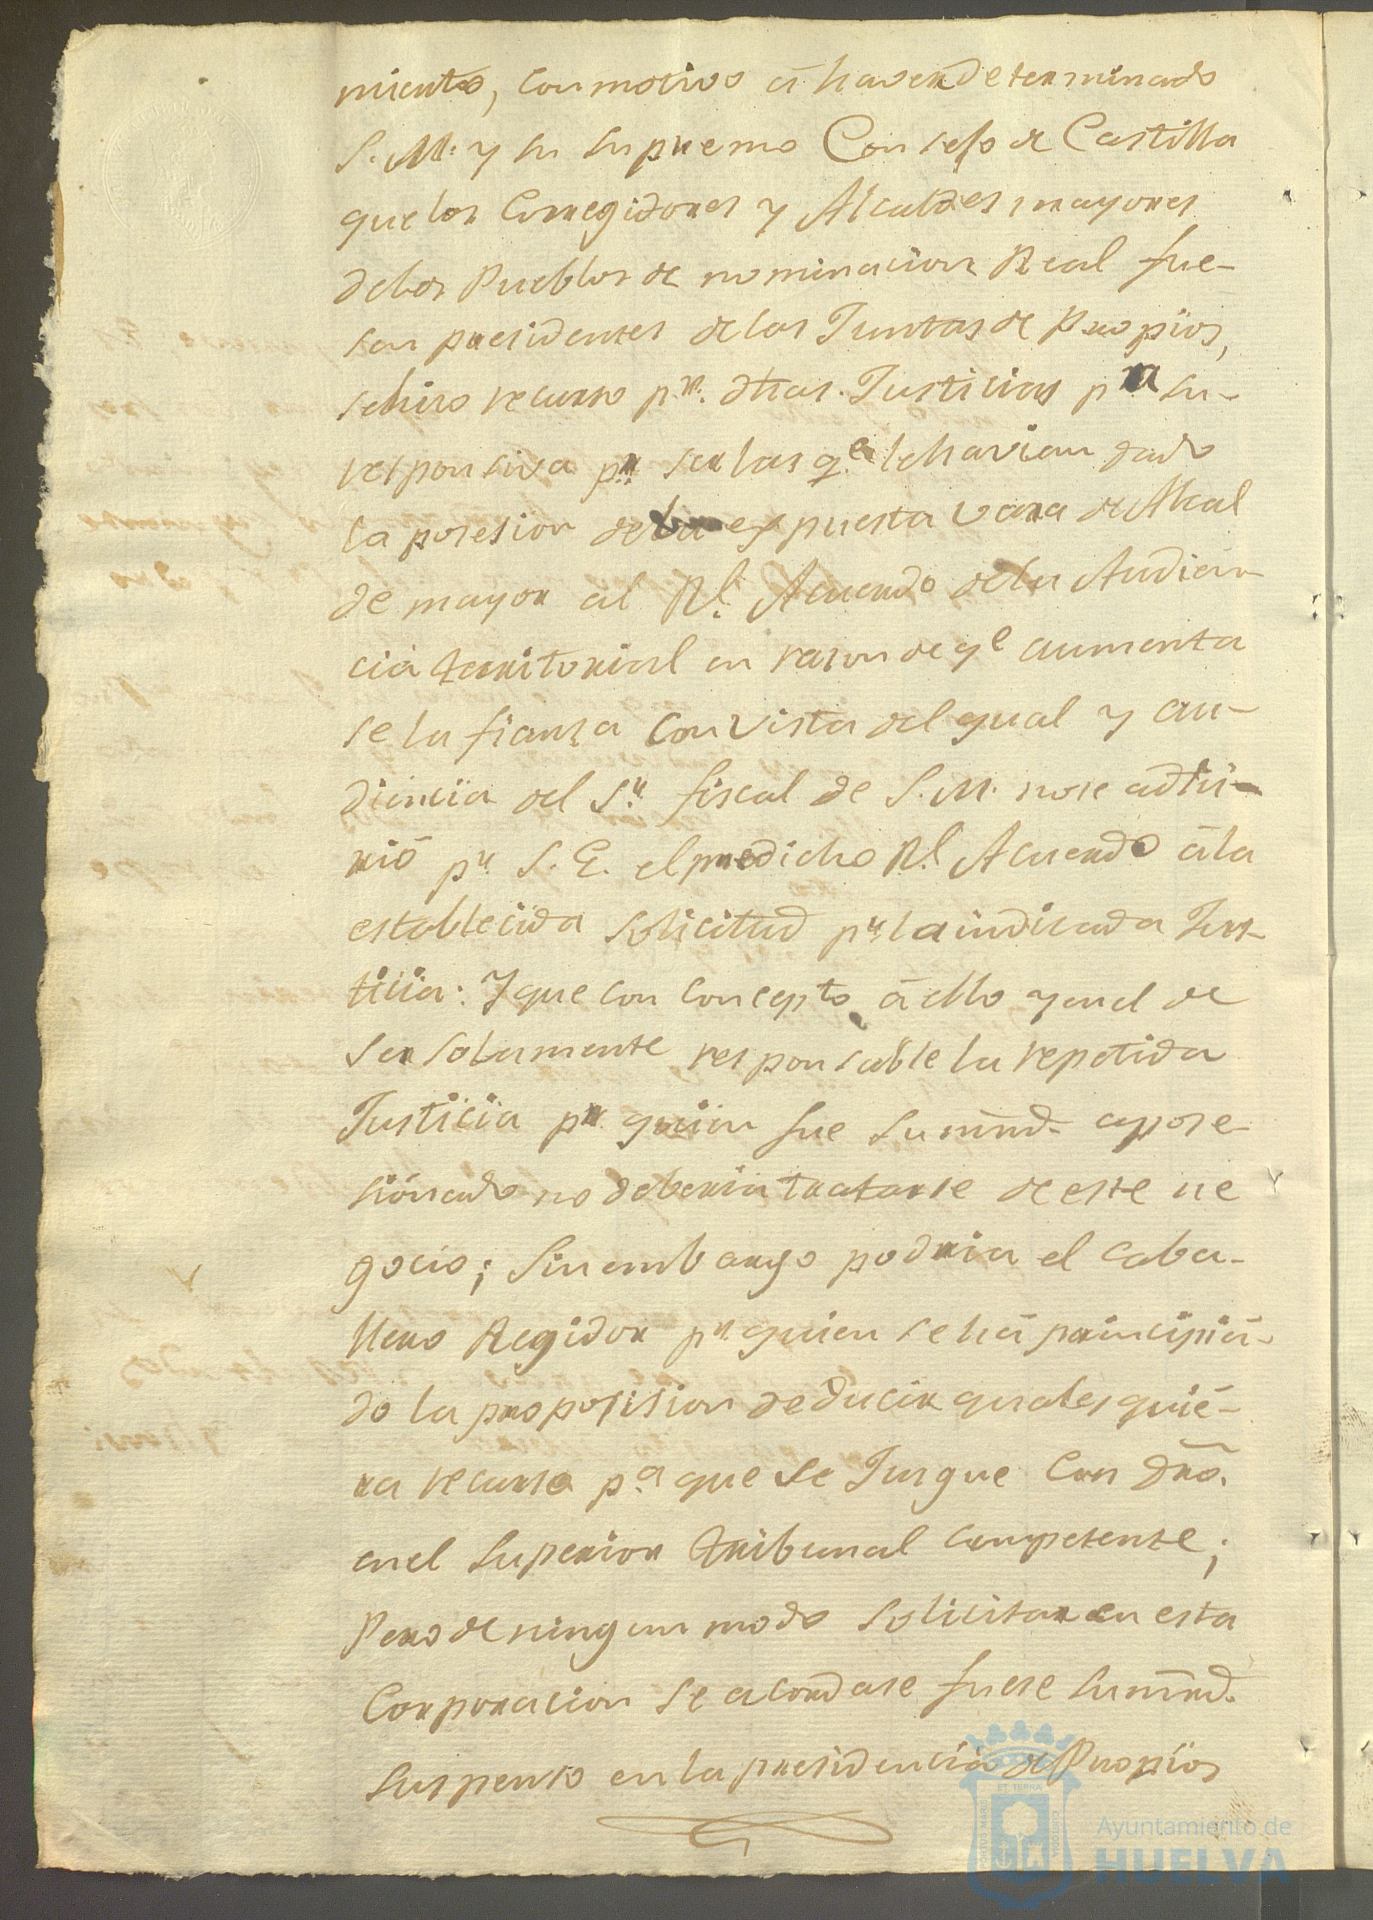 miento, con motivo á haver determinado
S. M. y su supremo Consejo de Castilla
que los Corregidores y Alcaldes mayores
delos Pueblos de nominacion Real fue-
sen presidentes delas Juntas de Propios,
sehiso recurso pr. dhas. Justicias pa su-
responsiva pr. ser las qe. lehavian dado
la posesion dela expuesta vara de Alcal
de mayor al Rl. Acuerdo dela Audien-
cia territorial en rason de qe aumenta
se la fianza con vista del qual y au-
diencia del Sr. fiscal de S. M. nose adhi-
rió pr. S. E. el predicho Rl. Acuerdo á la
establecida solicitud pr. la indicada Jus-
ticia: Y que con concepto á ello y en el de
ser solamente responsable la repetida
Justicia pr. quien fue su mrd. apose-
sionado no deberia tratarse de este ne
gocio; sin embargo podria el caba-
llero Regidor pr. quien se há principia-
do la proposision deducir qualesquie-
ra recurso pa. que se Jusgue con dro.
en el superior tribunal competente;
Pero de ningun modo solicitar en esta
Corporacion se acordase fuese su mrd.
suspenso en la presidencia de Propios
Ayuntamiento de
HUELVA